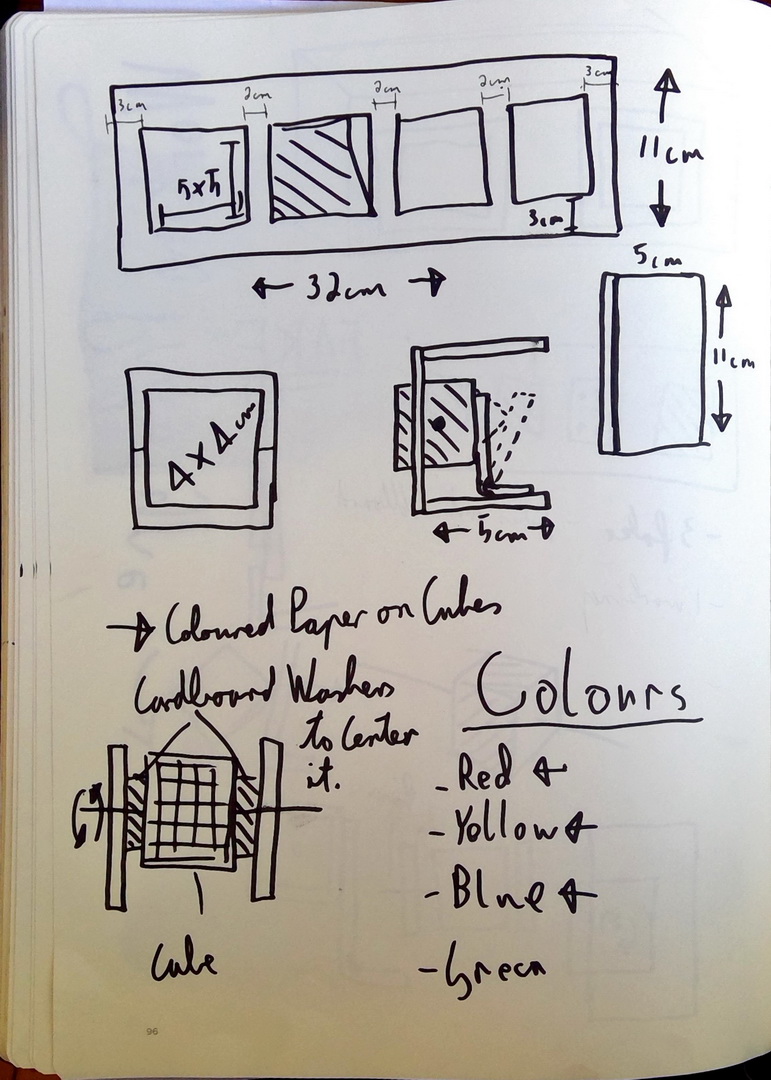 3cm
2cm
2cm
2cm
3cm
5x5
11cm
3cm
32cm
5cm
11cm
4x4cm
5cm
Coloured Paper on Cubes
Cardboard Washers
to Center
it.
Colours
- Red
- Yellow
- Blue
- Green
Cube
96